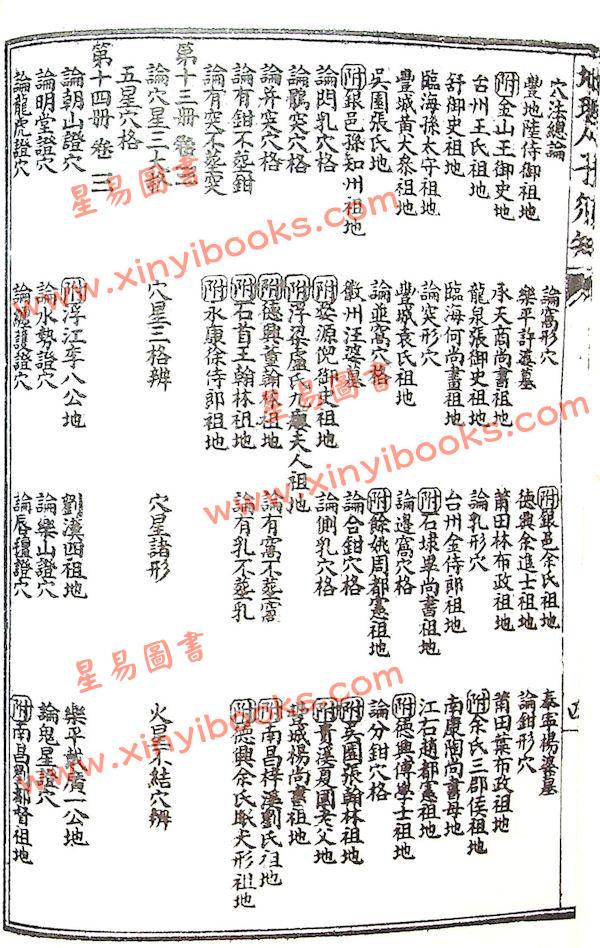 地理人子須知
四
穴法總論 論窩形穴 附銀邑余氏祖地 泰寧楊婆墓
豐地陸侍御祖地 樂平許氏墓 德興余進士祖地 論鉗形穴
附金山王御史地 承天商尚書祖地 莆田林布政祖地 莆田葉布政祖地
台州王氏祖地 龍泉張御史祖地 論乳形穴 附余氏三郡侯祖地
舒御史祖地 臨海何尚書祖地 台州金侍郎祖地 南康陶尚書母地
臨海孫太守祖地 論突形穴 附石埭畢尚書祖地 江右趙都憲祖地
豐城黃大參祖地 豐城袁氏祖地 論邊窩穴格 附德興傅學士祖地
吳園張氏地 論並窩穴格 附餘姚周都憲祖地 論分鉗穴格
附銀邑孫知州祖地 徽州汪婆墓 論合鉗穴格 附吳園張翰林祖地
論閃乳穴格 附婺源倪御史祖地 論側乳穴格 附貴溪夏國老父地
論鶻突穴格 附浮梁盧氏九夫人祖地 豐城楊尚書祖地
論并突穴格 附德興董翰林祖地 論有窩不葬窩 附南昌梓溪劉氏祖地
論有鉗不葬鉗 附石首王翰林祖地 論有乳不葬乳 附德興余氏形祖地
論有突不葬突 附永康徐侍郎祖地
第十三冊 卷三
論穴星三大格 穴星三格辨 穴星諸形 火星不結穴辨
五星穴格
第十四冊 卷三
論朝山證穴 附浮江李八公地 劉漢四祖地 樂平許廣一公地
論明堂證穴 論水勢證穴 論樂山證穴 論鬼星證穴
論龍虎證穴 論纏護證穴 論唇氈證穴 附南昌劉都督祖地
星易圖書
www.xinyibooks.com
星易圖書
www.xinyibooks.com
星易圖書
www.xinyibooks.com